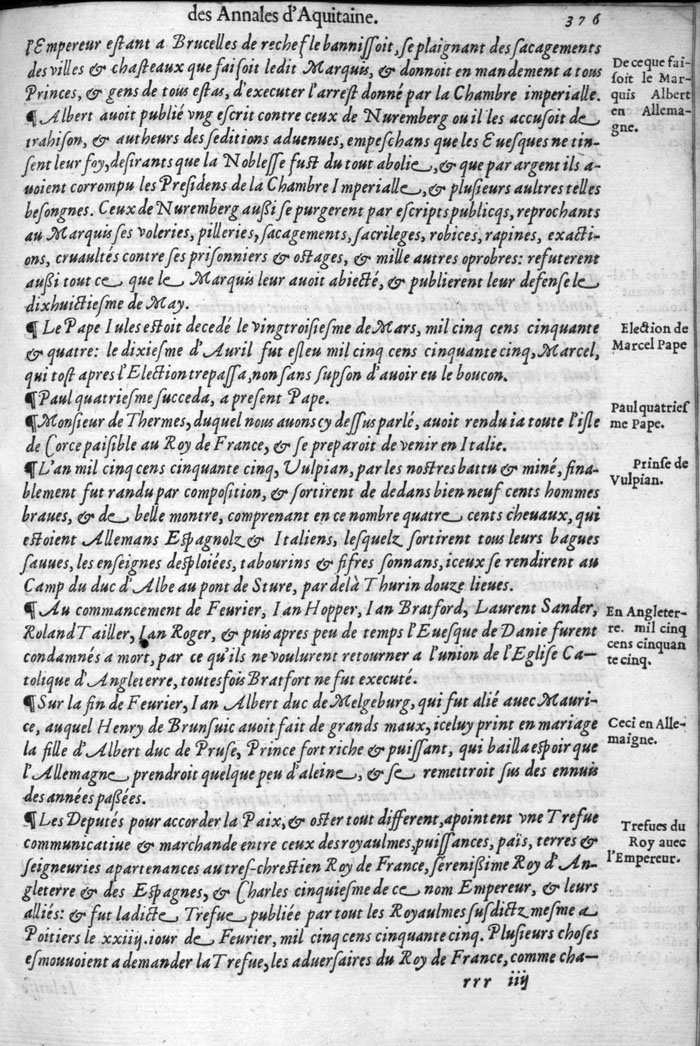 des Annales d'Aquitaine.
376
l'Empereur estant a Brucelles de rechef le bannissoit, se plaignant des sacagements
des villes & chasteaux que faisoit ledit Marquis, & donnoit en mandement a tous
Princes, & gens de tous estas, d'executer l'arrest donné par la Chambre imperialle.
De ce que fai-
soit le Mar-
quis Albert
en Allema-
gne.
¶ Albert auoit publié vng escrit contre ceux de Nuremberg ou il les accusoit de
trahison, & autheurs des seditions aduenues, empeschans que les Euesques ne tin-
sent leur foy, desirants que la Noblesse fust du tout abolie, & que par argent ils a-
uoient corrompu les Presidens de la Chambre Imperialle, & plusieurs aultres telles
besongnes. Ceux de Nuremberg außi se purgerent par escripts publicqs, reprochants
au Marquis ses voleries, pilleries, sacagements, sacrileges, robices, rapines, exacti-
ons, cruaultés contre ses prisonniers & ostages, & mille autres oprobres: refuterent
außi tout ce que le Marquis leur auoit abiecté, & publierent leur defense le
dixhuictiesme de May.
¶ Le Pape Iules estoit decedé le vingtroisiesme de Mars, mil cinq cens cinquante
& quatre: le dixiesme d'Auril fut esleu mil cinq cens cinquante cinq, Marcel,
qui tost apres l'Election trepassa, non sans supson d'auoir eu le boucon.
Election de
Marcel Pape
¶ Paul quatriesme succeda, a present Pape.
Paul quatries
me Pape.
¶ Monsieur de Thermes, duquel nous auons cy dessus parlé, auoit rendu ia toute l'isle
de Corce paisible au Roy de France, & se preparoit de venir en Italie.
¶ L'an mil cinq cens cinquante cinq, Uulpian, par les nostres battu & miné, fina-
blement fut randu par composition, & sortirent de dedans bien neuf cents hommes
braues, & de belle montre, comprenant en ce nombre quatre cents cheuaux, qui
estoient Allemans Espagnolz & Italiens, lesquelz sortirent tous leurs bagues
sauues, les enseignes desploiées, tabourins & fifres sonnans, iceux se rendirent au
Camp du duc d'Albe au pont de Sture, par delà Thurin douze lieues.
Prinse de
Vulpian.
¶ Au commancement de Feurier, Ian Hopper, Ian Bratford, Laurent Sander,
Roland Tailler, Ian Roger, & puis apres peu de temps l'Euesque de Danie furent
condamnés a mort, par ce qu'ils ne voulurent retourner a l'union de l'Eglise Ca-
tolique d'Angleterre, toutesfois Bratfort ne fut executé.
En Angleter-
re. mil cinq
cens cinquan
te cinq.
¶ Sur la fin de Feurier, Ian Albert duc de Melgeburg, qui fut alié auec Mauri-
ce, auquel Henry de Brunsuic auoit fait de grands maux, iceluy print en mariage
la fille d'Albert duc de Pruse, Prince fort riche & puissant, qui bailla espoir que
l'Allemagne prendroit quelque peu d'aleine, & se remettroit sus des ennuis
des années paßées.
Ceci en Alle-
maigne.
¶ Les Deputés pour accorder la Paix, & oster tout different, apointent vne Trefue
communicatiue & marchande entre ceux des royaulmes, puissances, païs, terres &
seigneuries apartenances au tres-chrestien Roy de France, sereniẞime Roy d'An-
gleterre & des Espagnes, & Charles cinquiesme de ce nom Empereur, & leurs
alliés: & fut ladicte Trefue publiée par tout les Royaulmes susdictz mesme a
Poitiers le xxiiij. iour de Feurier, mil cinq cens cinquante cinq. Plusieurs choses
esmouuoient a demander la Trefue, les aduersaires du Roy de France, comme cha-
Trefues du
Roy auec
l'Empereur.
rrr iiij